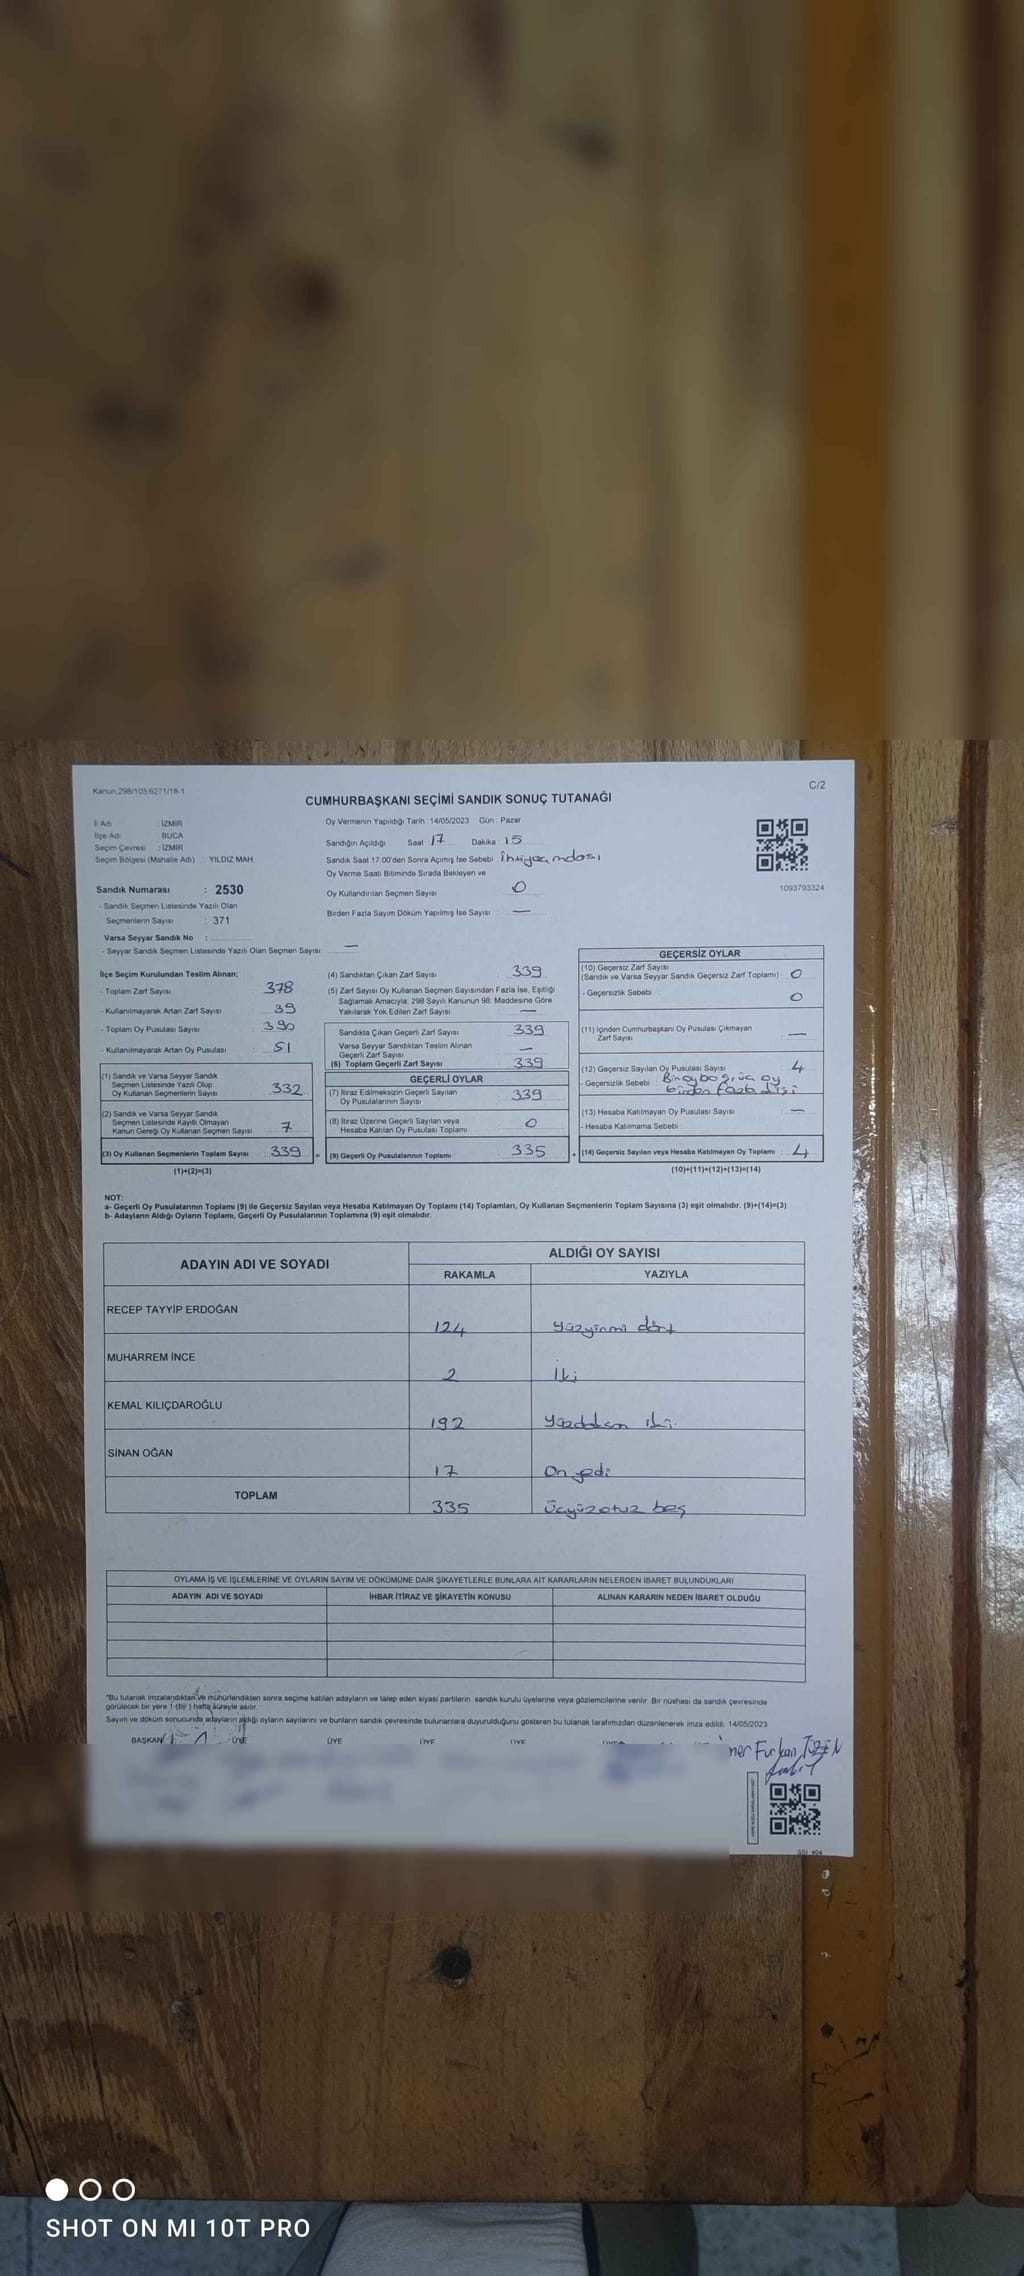 Kanun.298/105,6271/18-1
C/2
CUMHURBAŞKANI SEÇİMİ SANDIK SONUÇ TUTANAĞI
İl Adı İZMİR
İlçe Adı BUCA
Seçim Çevresi : İZMİR
Seçim Bölgesi (Mahalle Adı) : YILDIZ MAH
Oy Vermenin Yapıldığı Tarih :14/05/2023 Gün : Pazar
Sandığın Açıldığı Saat 17 Dakika 15
Sandık Saat 17.00'den Sonra Açımış İse Sebebi
Oy Verme Saati Bitiminde Sırada Bekleyen ve
Oy Kullandırılan Seçmen Sayısı 0
Birden Fazla Sayım Döküm Yapılmış İse Sayısı —
1093793324
Sandık Numarası : 2530
- Sandık Seçmen Listesinde Yazılı Olan
Seçmenlerin Sayısı : 371
Varsa Seyyar Sandık No :
- Seyyar Sandık Seçmen Listesinde Yazılı Olan Seçmen Sayısı —
İlçe Seçim Kurulundan Teslim Alınan;
- Toplam Zarf Sayısı : 378
- Kullanılmayarak Artan Zarf Sayısı : 39
- Toplam Oy Pusulası Sayısı : 390
- Kullanılmayarak Artan Oy Pusulası : 51
(1) Sandık ve Varsa Seyyar Sandık
Seçmen Listesinde Yazılı Olup
Oy Kullanan Seçmenlerin Sayısı 332
(2) Sandık ve Varsa Seyyar Sandık
Seçmen Listesinde Kayıtlı Olmayan
Kanun Gereği Oy Kullanan Seçmen Sayısı 7
(3) Oy Kullanan Seçmenlerin Toplam Sayısı : 339 =
(1)+(2)=(3)
(4) Sandıktan Çıkan Zarf Sayısı : 339
(5) Zarf Sayısı Oy Kullanan Seçmen Sayısından Fazla İse, Eşitliği
Sağlamak Amacıyla; 298 Sayılı Kanunun 98. Maddesine Göre
Yakılarak Yok Edilen Zarf Sayısı —
Sandıkta Çıkan Geçerli Zarf Sayısı : 339
Varsa Seyyar Sandıktan Teslim Alınan
Geçerli Zarf Sayısı —
(6) Toplam Geçerli Zarf Sayısı : 339
GEÇERLİ OYLAR
(7) İtiraz Edilmeksizin Geçerli Sayılan
Oy Pusulalarının Sayısı 339
(8) İtiraz Üzerine Geçerli Sayılan veya
Hesaba Katılan Oy Pusulası Toplamı 0
(9) Geçerli Oy Pusulalarının Toplamı : 335 +
GEÇERSİZ OYLAR
(10) Geçersiz Zarf Sayısı
(Sandık ve Varsa Seyyar Sandık Geçersiz Zarf Toplamı) : 0
- Geçersizlik Sebebi : 0
(11) İçinden Cumhurbaşkanı Oy Pusulası Çıkmayan
Zarf Sayısı —
(12) Geçersiz Sayılan Oy Pusulası Sayısı : 4
- Geçersizlik Sebebi : Bir oy boş, üç oy
birden fazla
(13) Hesaba Katılmayan Oy Pusulası Sayısı —
- Hesaba Katılmama Sebebi :
(14) Geçersiz Sayılan veya Hesaba Katılmayan Oy Toplamı : 4
(10)+(11)+(12)+(13)=(14)
NOT:
a- Geçerli Oy Pusulalarının Toplamı (9) ile Geçersiz Sayılan veya Hesaba Katılmayan Oy Toplamı (14) Toplamları, Oy Kullanan Seçmenlerin Toplam Sayısına (3) eşit olmalıdır. (9)+(14)=(3)
b- Adayların Aldığı Oyların Toplamı, Geçerli Oy Pusulalarının Toplamına (9) eşit olmalıdır.
ADAYIN ADI VE SOYADI ALDIĞI OY SAYISI
RAKAMLA YAZIYLA
RECEP TAYYİP ERDOĞAN 124 yüzyirmi dört
MUHARREM İNCE 2 İki
KEMAL KILIÇDAROĞLU 192 yüzdoksan iki
SİNAN OĞAN 17 On yedi
TOPLAM 335 üçyüzotuz beş
OYLAMA İŞ VE İŞLEMLERİNE VE OYLARIN SAYIM VE DÖKÜMÜNE DAİR ŞİKAYETLERLE BUNLARA AİT KARARLARIN NELERDEN İBARET BULUNDUKLARI
ADAYIN ADI VE SOYADI İHBAR İTİRAZ VE ŞİKAYETİN KONUSU ALINAN KARARIN NEDEN İBARET OLDUĞU
*Bu tutanak imzalandıktan ve mühürlendikten sonra seçime katılan adayların ve talep eden siyasi partilerin sandık kurulu üyelerine veya gözlemcilerine verilir. Bir nüshası da sandık çevresinde
görülecek bir yere 1 (bir) hafta süreyle asılır.
Sayım ve döküm sonucunda adayların aldığı oyların sayılarını ve bunların sandık çevresinde bulunanlara duyurulduğunu gösteren bu tutanak tarafımızdan düzenlenerek imza edildi. 14/05/2023
BAŞKAN ÜYE ÜYE ÜYE ÜYE
Furkan
SHOT ON MI 10T PRO